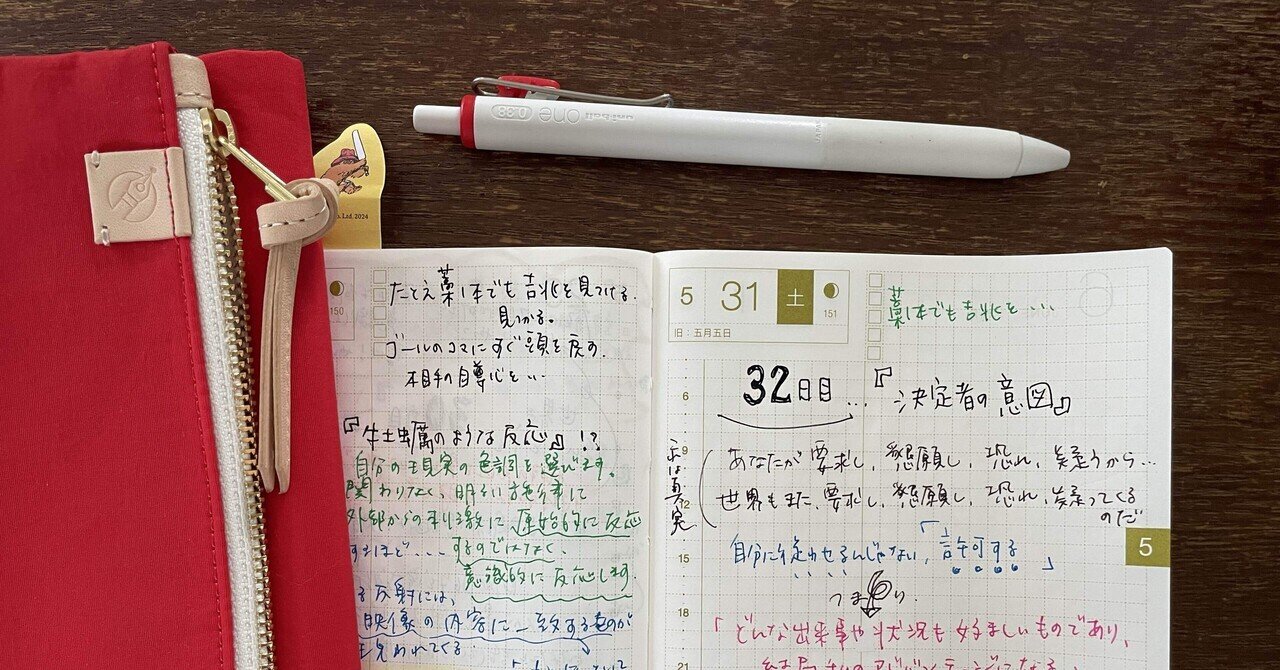 uni-ball one 0.38
JAPAN
o. Ltd. 2024
150
たとえ藁1本でも吉兆を見つける。
見つかる。
ゴールのコマにすぐ頭を戻す。
相手の自尊心を…
『牡蠣のような反応』!?
自分の現実の色調を選びます。
関わりなく、明るい
外部からの刺激に原始的に反応
するのではなく、
意識的に反応します。
反射には、
映像の内容に一致するものが
現われてくる。
5 31 土
151
旧:五月五日
藁1本でも吉兆を…
32日目… 『決定者の意図』
6
9
12
15
18
21
あなたが要求し、懇願し、恐れ、疑うから…
世界もまた、要求し、懇願し、恐れ、疑ってくる
のだ
は真実
自分に従わせるんじゃない、「許可する」
つまり、
「どんな出来事や状況も好ましいものであり、
アドバンテージになる
5